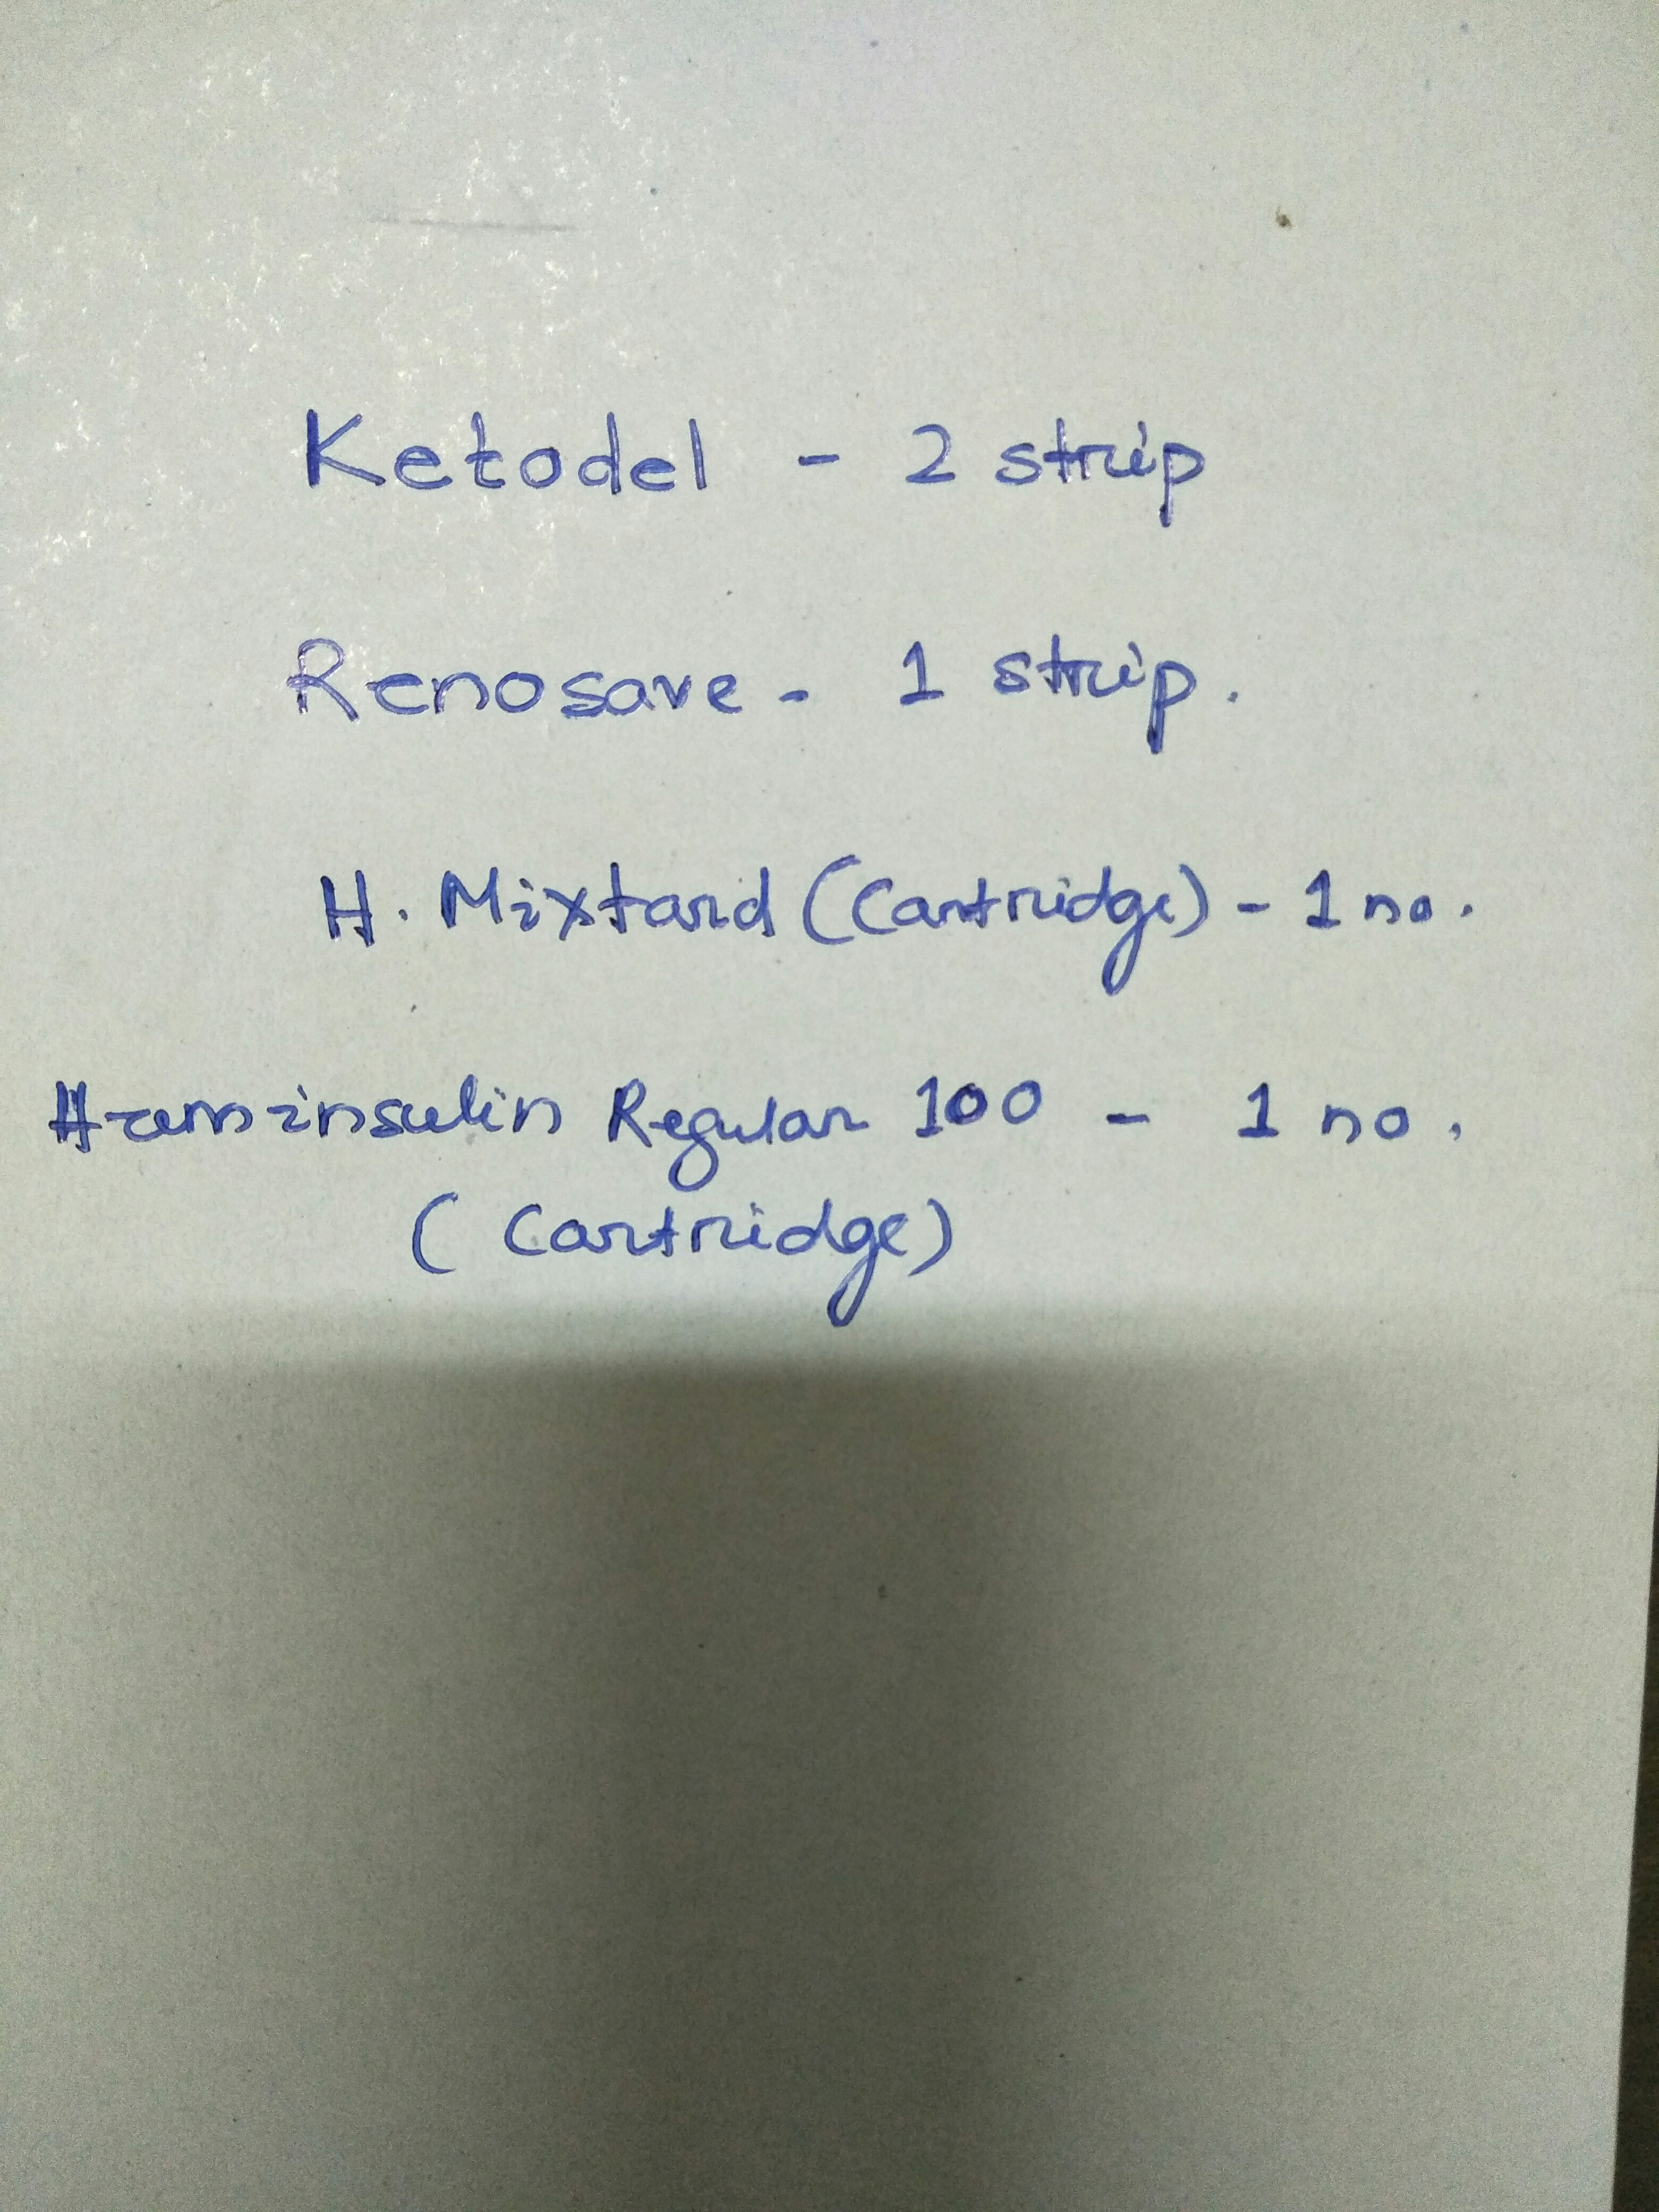 Ketodel - 2 strip
Renosave - 1 strip.
H. Mixtard (Cartridge) - 1 no.
Huminsulin Regular 100 - 1 no.
(Cartridge)